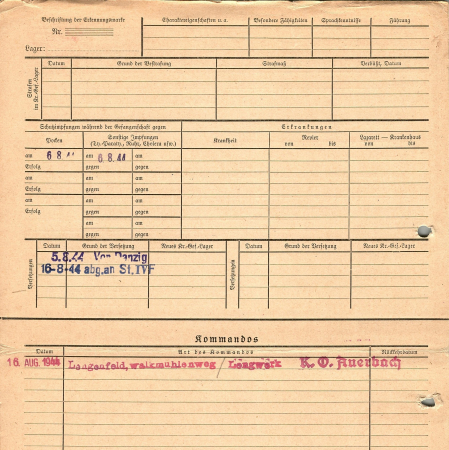 Beschriftung der Erkennungsmarke
Nr.
Lager:
Charaktereigenschaften u. a.
Besondere Fähigkeiten
Sprachkenntnisse
Führung
Strafen im Kr.-Gef.-Lager
Datum
Grund der Bestrafung
Strafmaß
Verbüßt, Datum
Schutzimpfungen während der Gefangenschaft gegen
Erkrankungen
Pocken
Sonstige Impfungen
(Ty.-Paraty., Ruhr, Cholera usw.)
Krankheit
Revier
von bis
Lazarett — Krankenhaus
von bis
am 6 8. 44 am 6.8.44 am
Erfolg gegen gegen
am am am
Erfolg gegen gegen
am am am
Erfolg gegen gegen
am am
gegen gegen
Versetzungen
Datum
Grund der Versetzung
Neues Kr.-Gef.-Lager
Versetzungen
Datum
Grund der Versetzung
Neues Kr.-Gef.-Lager
5.8.44 Von Danzig
16-8-44 abg.an St.IVF
Kommandos
Datum
Art des Kommandos
Rückkehrdatum
16. AUG. 1944 Lengenfeld, walkmühlenweg / K. O. Auerbach